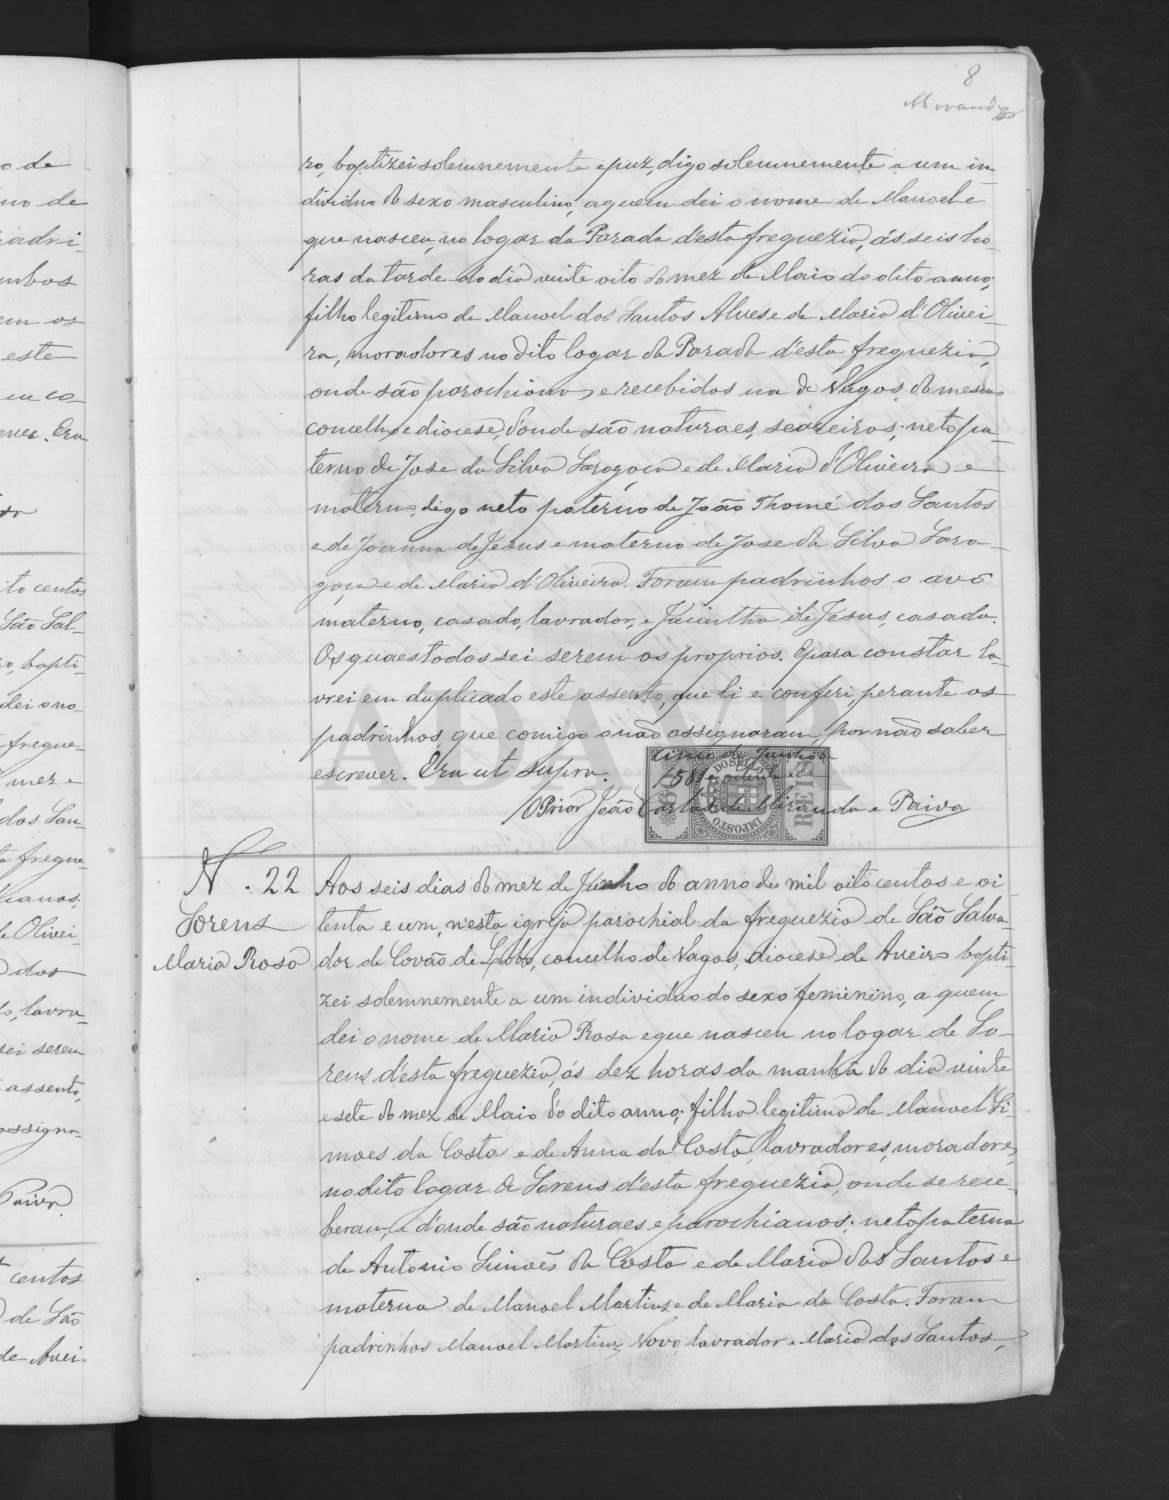 8
Miranda
ro, baptizei solemnemente e puz, digo solemnemente a um in-
dividuo do sexo masculino, a quem dei o nome de Manoel e
que nasceu no logar da Parada d'esta freguezia, ás seis ho-
ras da tarde do dia vinte oito do mez de Maio do dito anno,
filho legitimo de Manoel dos Santos Alves e de Maria d'Olivei-
ra, moradores no dito logar da Parada d'esta freguezia,
onde são parochianos e recebidos na de Vagos, do mesmo
concelho e diocese, d'onde são naturaes, seareiros; neto pa-
terno de Jose da Silva Saragoça e de Maria d'Oliveira e
materno, digo neto paterno de João Thomé dos Santos
e de Joanna de Jesus e materno de Jose da Silva Sara-
goça e de Maria d'Oliveira. Foram padrinhos o avô
materno, casado, lavrador, e Jacintha de Jesus, casada.
Os quaes todos sei serem os proprios. E para constar la-
vrei em duplicado este assento, que li e conferi, perante os
padrinhos, que comigo o não assignaram por não saber
escrever. Era ut supra.
cinco de Junho
1881
O Prior João Carlos de Miranda e Paiva
IMPOSTO DO SELLO
REIS
ADAVR
N.º 22
Lorens
Maria Rosa
Aos seis dias do mez de Junho do anno de mil oito centos e oi-
tenta e um, n'esta igreja parochial da freguezia de São Salva-
dor de Covão do Lobo, concelho de Vagos, diocese de Aveiro bapti-
zei solemnemente a um individuo do sexo feminino, a quem
dei o nome de Maria Rosa e que nasceu no logar de Lo-
rens d'esta freguezia, ás dez horas da manhã do dia vinte
e sete do mez de Maio do dito anno; filha legitima de Manoel Si-
moes da Costa e de Anna da Costa, lavradores, moradores
no dito logar de Lorens d'esta freguezia, onde se rece-
beram, e d'onde são naturaes e parochianos; neta paterna
de Antonio Simões da Costa e de Maria dos Santos e
materna de Manoel Martins e de Maria da Costa. Foram
padrinhos Manoel Martins Novo, lavrador e Maria dos Santos,